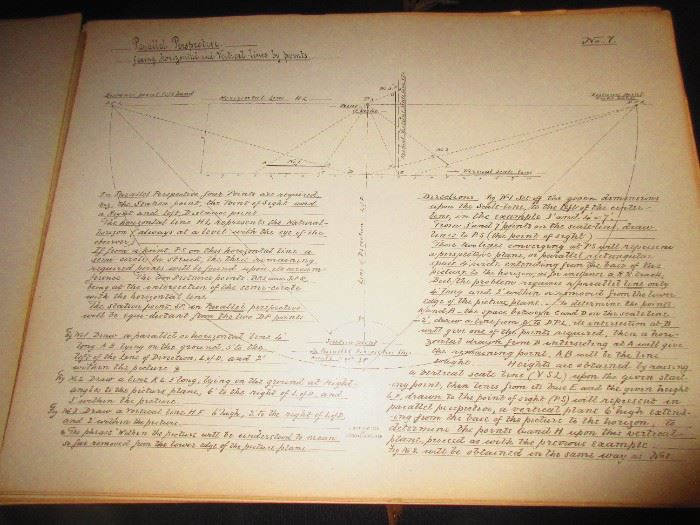 Parallel Perspective.
fixing Horizontal and Vertical Lines by points.
No. 7.
Distance point left hand
Horizontal Line H.L
Distance point
D.P.L
Vertical Scale Line
In Parallel Perspective four Points are required,
viz, the Station point, the Point of Sight and
a Right and left Distance point
The horizontal line H.L represents the Natural
horizon (always at a level with the eye of the
observer)
If from a point P.S on this horizontal line a
semi-circle be struck, the three remaining
required points will be found upon its circum-
ference. The two Distance points
being at the intersection of the semi-circle
with the horizontal line.
The Station point SP on Parallel perspective
will be equi-distant from the two DP points
Fig No.1 Draw a parallel or horizontal line 4
long A B lying on the ground, 5 to the
left of the Line of Direction, L of D, and 2
within the picture
Fig No.2 Draw a line K L 5 long, lying on the ground at Right
angles to the picture plane, 6 to the right of L of D, and
1 within the picture.
Fig No.3 Draw a vertical line H.F 6 high, 2 to the right of L of D,
and 2 within the picture
The phrase "Within the picture" will be understood to mean
so far removed from the lower edge of the picture plane
Directions. Fig No.1 Set off the given dimensions
upon the Scale-line, to the left of the centre
line, in the example
From 5 and 9 points on the scale line, draw
lines to P.S (the point of sight)
These two lines converging at P.S will represent
a perspective plane, or parallel rectangular
space 4 wide extending from the base of the
picture to the horizon,
But the problem requires a parallel line only
4 long and 2 within or removed from the lower
edge of the picture plane. To determine the points
A and B
draw a line from to D.P.L, its intersection at B
will give one of the points required, then a hori-
zontal drawn from B intersecting at A will give
the remaining point, A B will be the line
sought. Heights are obtained by raising
a vertical scale line (V.S.L) upon the given start-
ing point, then lines from its base and the given height
drawn to the point of sight (P.S) will represent in
parallel perspective, a vertical plane 6 high extend-
ing from the base of the picture to the horizon, to
determine the points G and H upon this vertical
plane, proceed as with the previous example
Fig No.2 will be obtained in the same way as No.1.